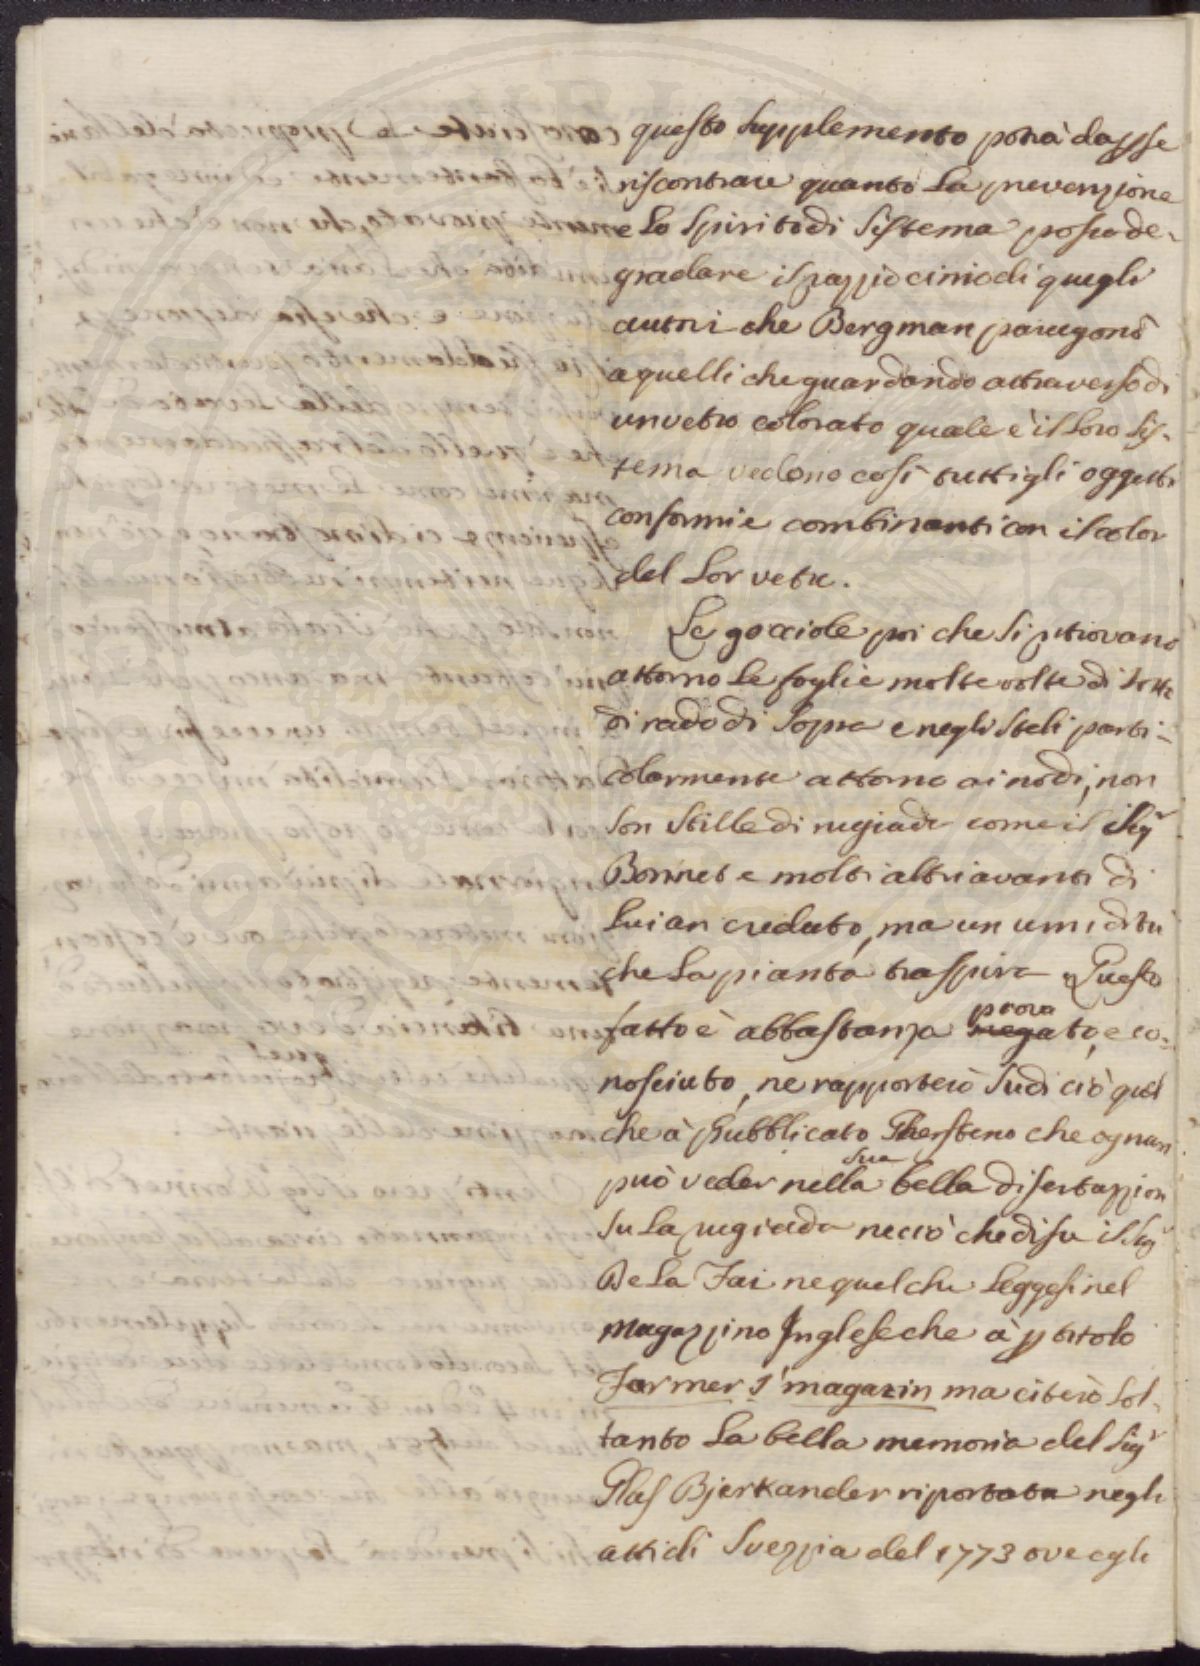 questo supplemento potrà dasse
riscontrare quanto la prevenzione
e lo spirito di sistema possa de-
gradare il raziocinio di quegli
autori che Bergman paragonò
a quelli che guardando attraverso di
un vetro colorato quale è il loro sis-
tema vedono così tutti gli oggetti
conformi e combinanti con il color
del lor vetro.
Le gocciole poi che si ritrovano
attorno le foglie molte volte di sotto
di rado di sopra e negli steli parti-
colarmente attorno ai nodi, non
son stille di rugiada come il Sigr
Bonnet e molti altri avanti di
lui an creduto, ma un umidità
che la pianta traspira. Questo
prova
fatto è abbastanza negato, e co-
nosciuto, ne rapporterò su di ciò quel
che à pubblicato Ghersteno che ognun
sua
può veder nella bella disertazzion
su la rugiada ne ciò che disse il Sigr
De la Fai ne quel che leggesi nel
magazzino Inglese che à p titolo
Farmer s' magazin ma citerò sol-
tanto la bella memoria del Sigr
Clas Bjerkander riportata negli
atti di Svezzia del 1773 ove egli